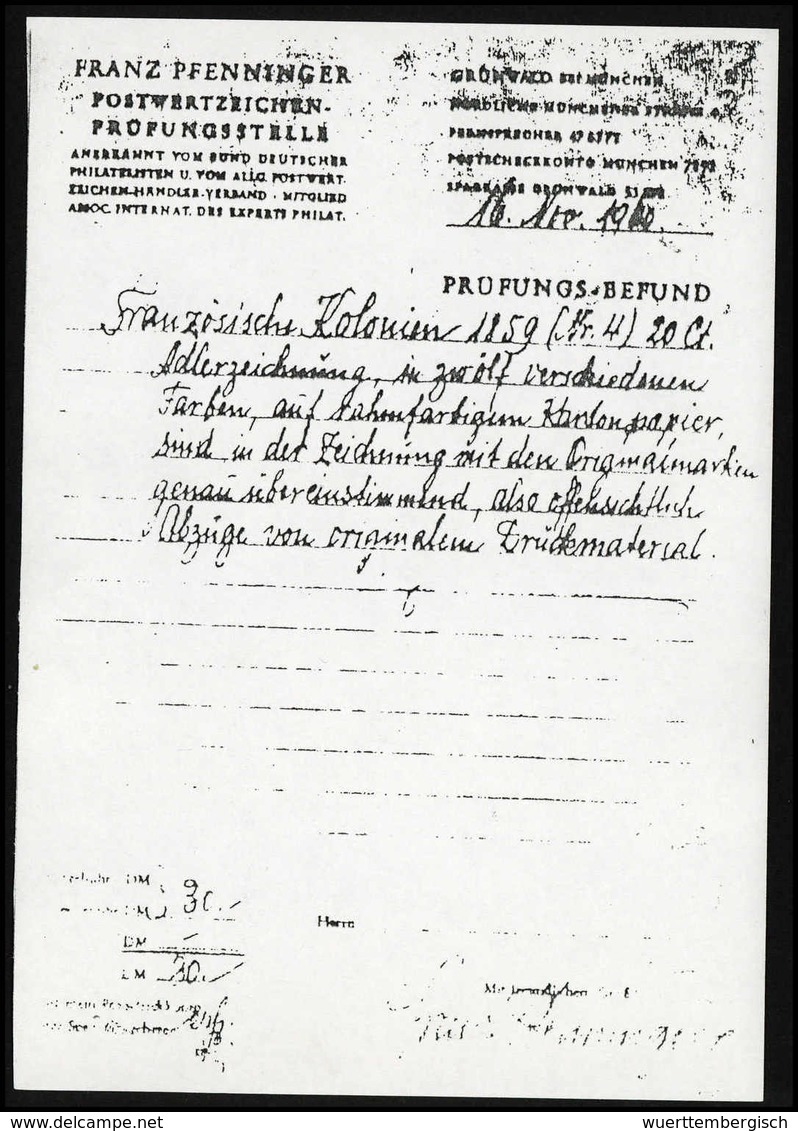 FRANZ PFENNINGER
POSTWERTZEICHEN-
PRÜFUNGSSTELLE
ANERKANNT VOM BUND DEUTSCHER
PHILATELISTEN U. VOM ALLG. POSTWERT-
ZEICHEN-HÄNDLER-VERBAND · MITGLIED
ASSOC. INTERNAT. DES EXPERTS PHILAT.
GRÜNWALD BEI MÜNCHEN
NÖRDLICHE MÜNCHENER STRASSE
FERNSPRECHER
POSTSCHECKKONTO MÜNCHEN
SPARKASSE GRÜNWALD
16. Nov. 1960.
PRÜFUNGS-BEFUND
Französische Kolonien 1859 (Nr. 4) 20 Ct.
Adlerzeichnung, in zwölf verschiedenen
Farben, auf rahmfarbigem Kartonpapier,
sind in der Zeichnung mit den Originalmarken
genau übereinstimmend, also offensichtlich
Abzüge von originalem Druckmaterial.
DM
30.-
DM
DM 30.-
Herrn
wuerttembergisch